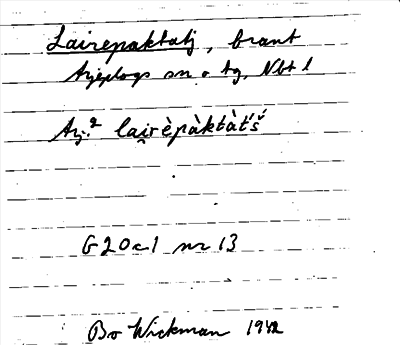 Lairepaktatj, brant
Arjeplogs sn o tg, Nbt l
Arj.² lai̯rèpàktàt́š́
G20c1 nr 13
Bo Wickman 1942